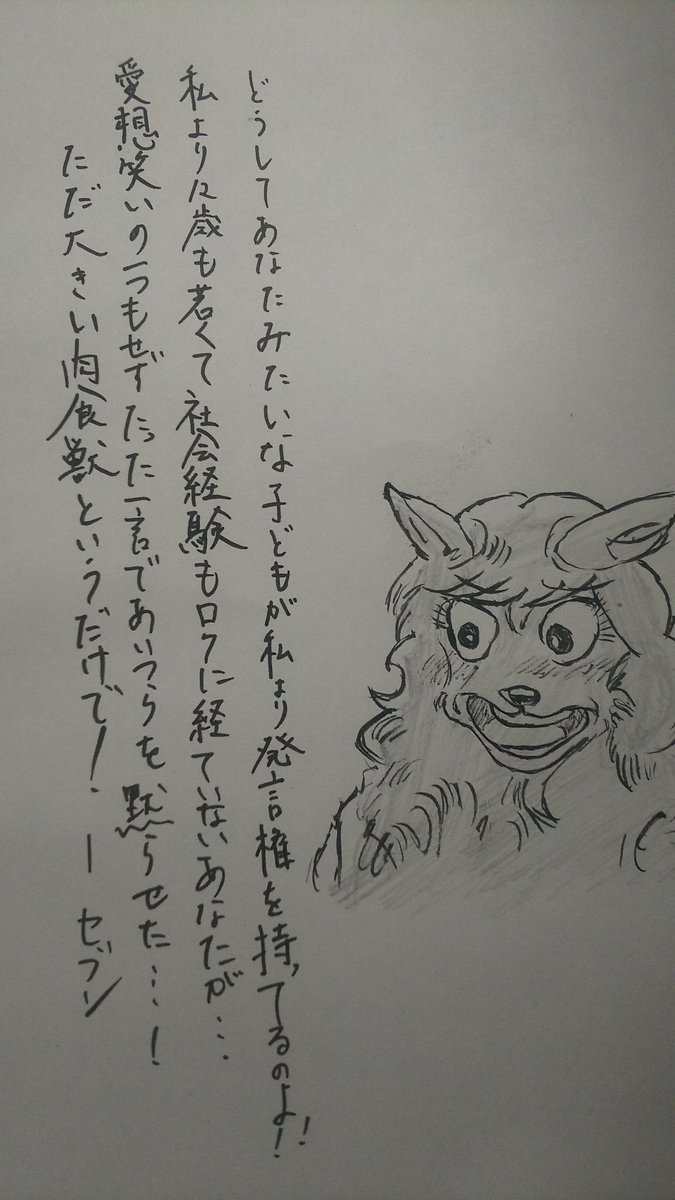 どうしてあなたみたいな子どもが私より発言権を持ってるのよ!!
私より12歳も若くて社会経験もロクに経ていないあなたが…
愛想笑いの一つもせずたった一言であいつらを黙らせた…!
ただ大きい肉食獣というだけで! ーセブン